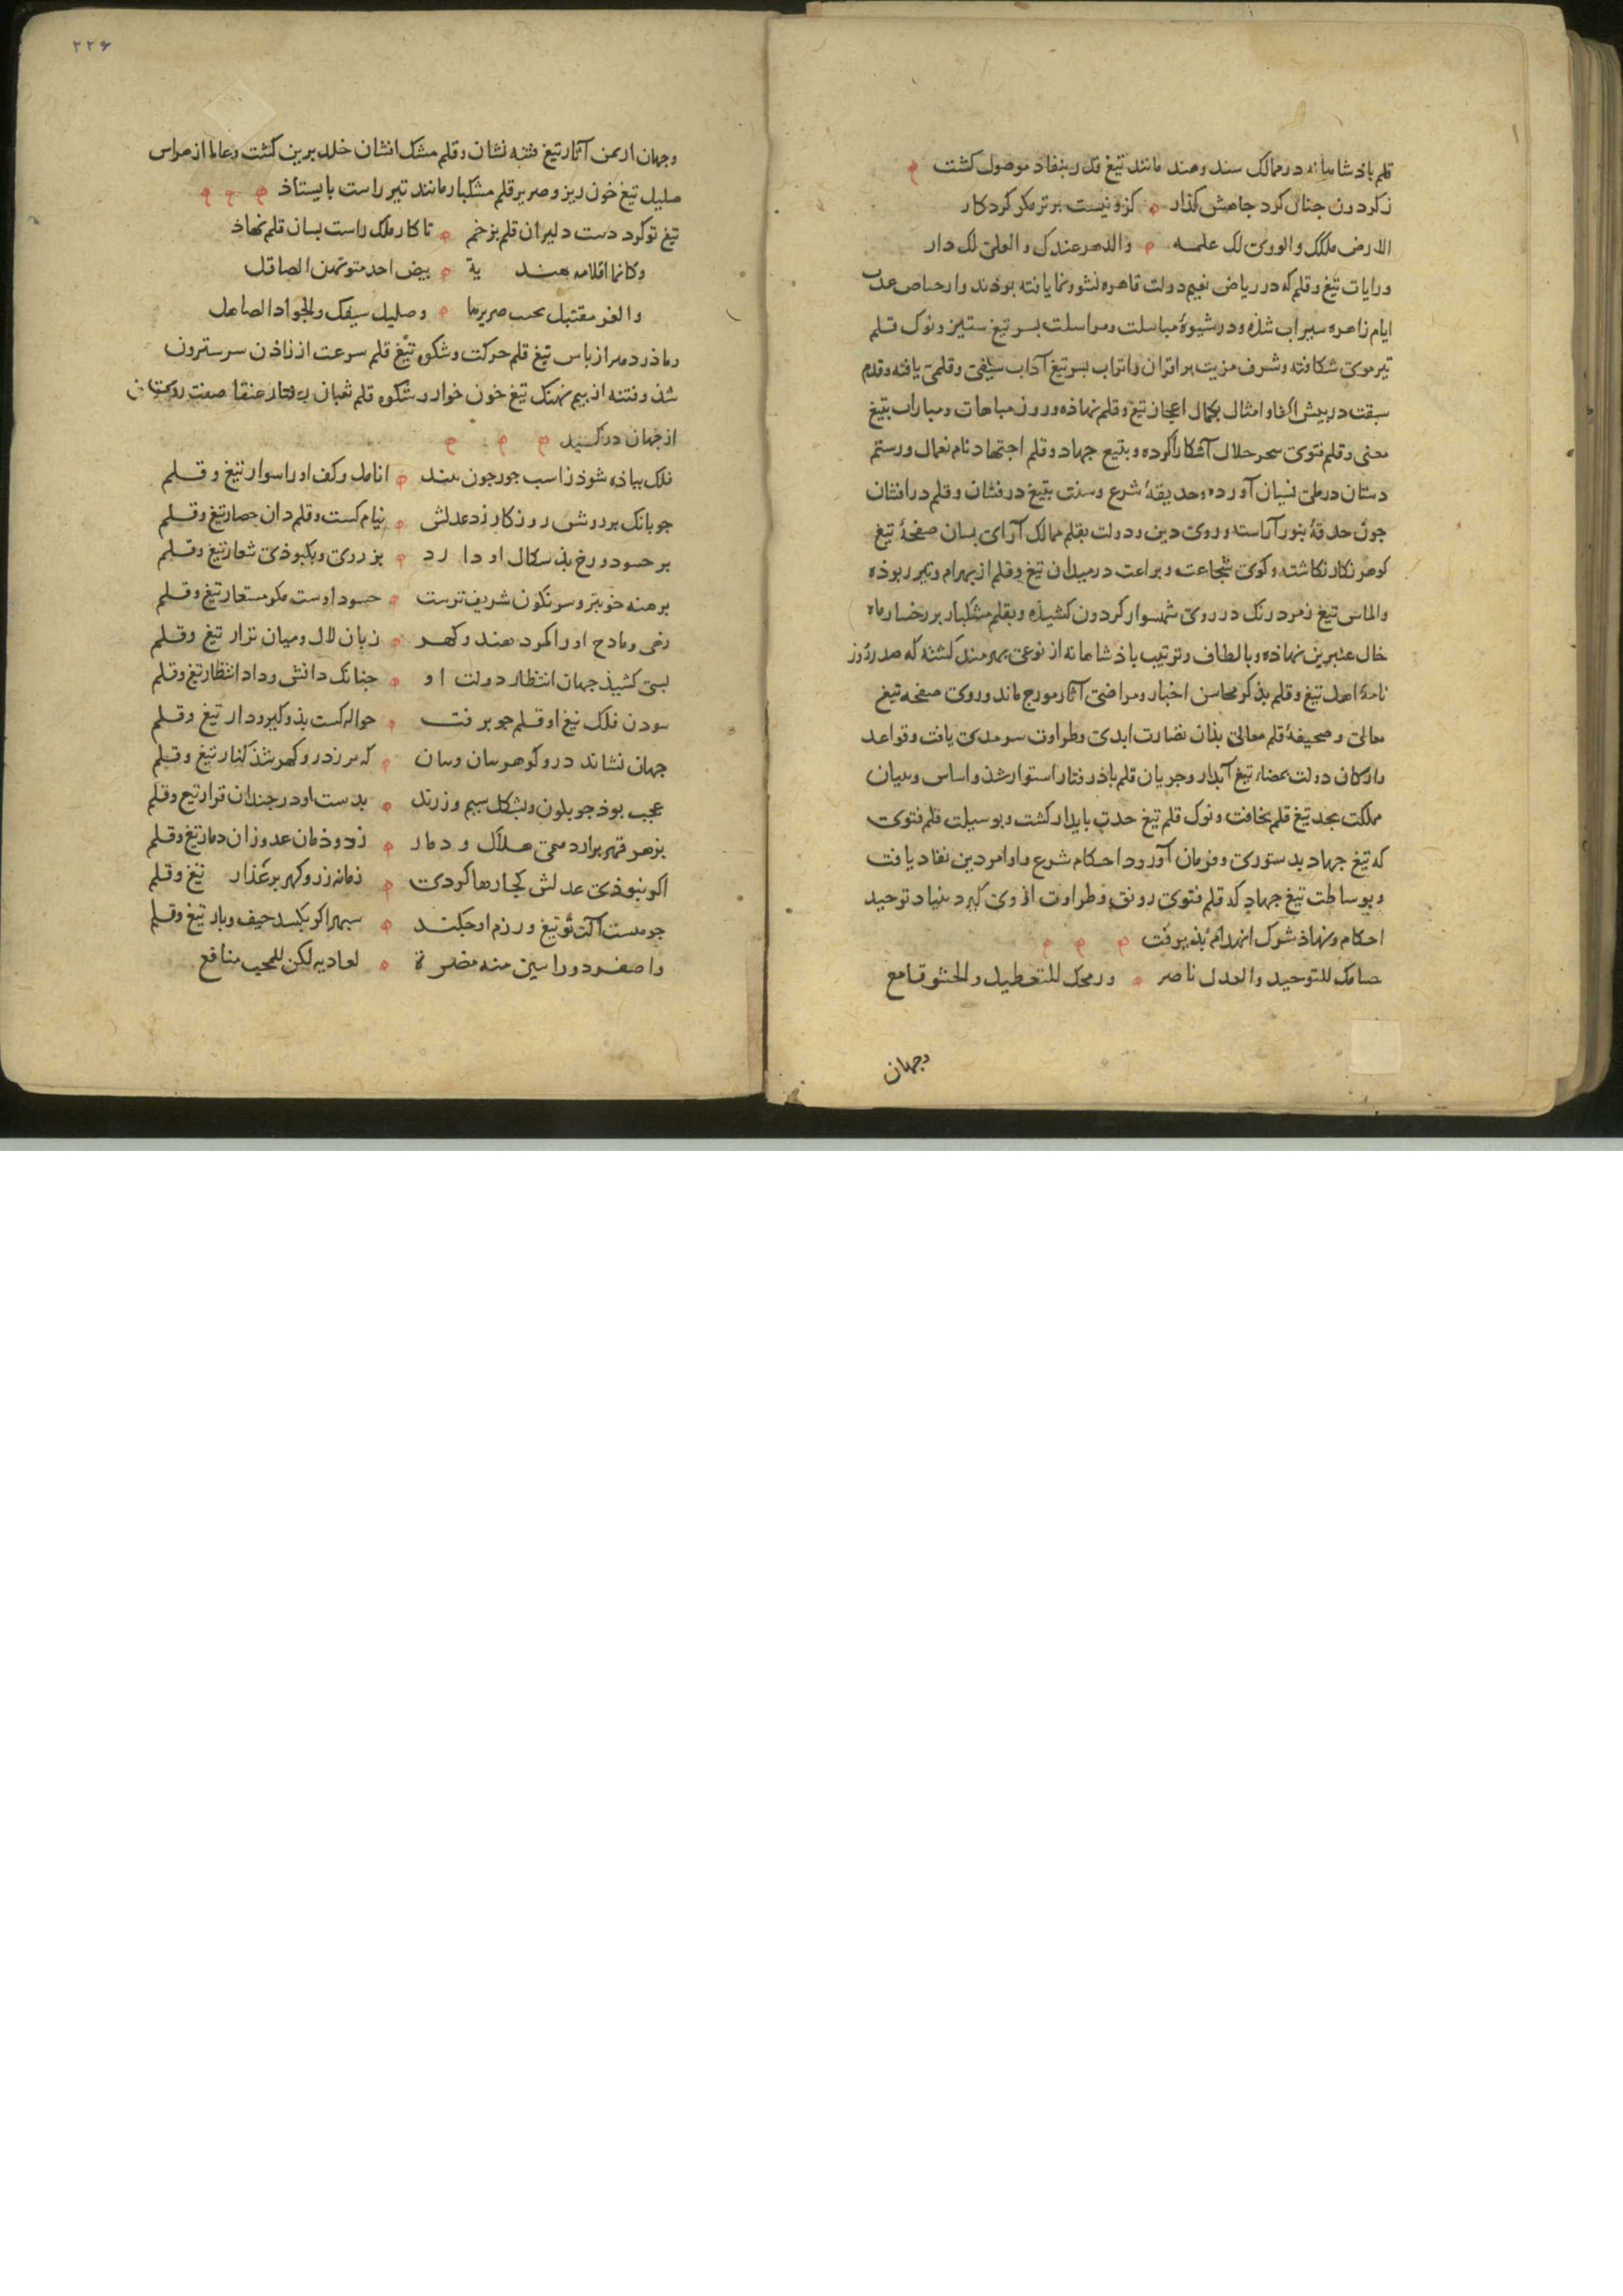 قلم باذشاهانه در ممالک سند و هند مانند تیغ قدر بنفاد موصول کشت
ز کردون جنان کرد جاهش کذار کزو نیست برتر مکر کردکار
الارض ملکک والوری لک علمه والدهر عندک والعلی لک دار
و رایات تیغ و قلم که در ریاض نعیم دولت قاهره نشو و نما یافته بوذند و از حیاض عدل
ایام زاهره سیراب شذه و در شیوهٔ مباسلت و مراسلت بسر تیغ ستیز و نوک قلم
تیر موی شکافته و شرف مزیت بر اقران و اتراب بسر تیغ آداب سیفی و قلمی یافته و قدم
سبقت در بیش اکفا و امثال بکمال اعجاز تیغ و قلم نهاذه و روز مباهات و مبارات بتیغ
معنی و قلم فتوی سحر حلال آشکارا کرده و بتیغ جهاد و قلم اجتهاد نام نعمان و رستم
دستان در طی نسیان آورده و حدیقهٔ شرع و سنت بتیغ درفشان و قلم درافشان
جون حدقهٔ بنور آراسته و روی دین و دولت بقلم ممالک آرای بسان صفحهٔ تیغ
کوهر نکار نکاشته و کوی شجاعت و براعت در میدان تیغ و قلم از بهرام و تیر ربوذه
والماس تیغ زمرد رنک در روی شهسوار کردون کشیذه و بقلم مشکبار بر رخسار ماه
خال عنبرین نهاذه و بالطاف و ترتیب باذشاهانه از نوعی بهرمند کشته که صدر روز
نامهٔ اهل تیغ و قلم بذکر محاسن اخبار و مراضی آثار مورج ماند و روی صفحه تیغ
معالی و صحیفهٔ قلم معالی بذان نضارت ابدی و طراوت سرمدی یافت و قواعد
و ارکان دولت بمضاء تیغ آبدار و جریان قلم باذ رفتار استوار شذ و اساس و بنیان
مملکت بحد تیغ قلم نحافت و نوک قلم تیغ حدت بایدار کشت و بوسیلت قلم فتوی
که تیغ جهاد بدستوری و فرمان آورد احکام شرع و اوامر دین نفاد یافت
و بوساطت تیغ جهاد که قلم فتوی رونق و طراوت از وی کیرد بنیاد توحید
احکام و نهاذ شرک انهدام بذیرفت
حسامک للتوحید والعدل ناصر ورمحک للتعطیل والحشو قامع
وجهان
۲۲۶
وجهان از یمن آثار تیغ فتنه نشان و قلم مشک افشان خلد برین کشت و عالم از هراس
صلیل تیغ خون ریز و صریر قلم مشکبار مانند تیر راست بایستاذ
تیغ تو کرد دست دلیران قلم بزخم تا کار ملک راست بسان قلم نهاذ
وکانما اقلامه هندیة بیض احد متونهن الصاقل
والعز مقتبل بحیث صریرها وصلیل سیفک والجواد الصاهل
و ماذر دهر از باس تیغ قلم حرکت و شکوه تیغ قلم سرعت از زاذن سر سترون
شذ و فتنه از بیم نهنک تیغ خون خوار و شکوه قلم ثعبان رفتار عنقا صفت روی
از جهان درکشید
فلک بیاذه شوذ ز اسب جور جون بیند انامل و کف او را سوار تیغ و قلم
جو بانک بر روش روزکار زد عدلش نیام کشت و قلمدان حصار تیغ و قلم
بر حسود و رخ بذسکال او دارد بزردی و بکبوذی شعار تیغ و قلم
برهنه خوبتر و سرنکون شریف ترست حسود اوست مکر مستعار تیغ و قلم
زبان لال و میان نزار تیغ و قلم
بسی کشیذ جهان انتظار دولت او جنانک دانش و داد انتظار تیغ و قلم
سوذن فلک تیغ او قلم جو برفت حواله کشت بذو کیرودار تیغ و قلم
جهان نشاند درو کوهر که بر ز در و کهر شذ کنار تیغ و قلم
عجب بوذ جو بلون و بشکل سیم و زرند بدست او در جندان قرار تیغ و قلم
بزهر قهر برآرد همی هلاک و دمار ز دوذمان عدو زان دمار تیغ و قلم
اکر نبوذی عدلش کجا رها کردی زمانه زر و کهر بر عذار تیغ و قلم
جو هست آلت تو تیغ و رزم او جکند سبهر اکر نکشد حیف و بار تیغ و قلم
واصفر ذو راسین منه مضرة لعادیه لکن للمحب منافع